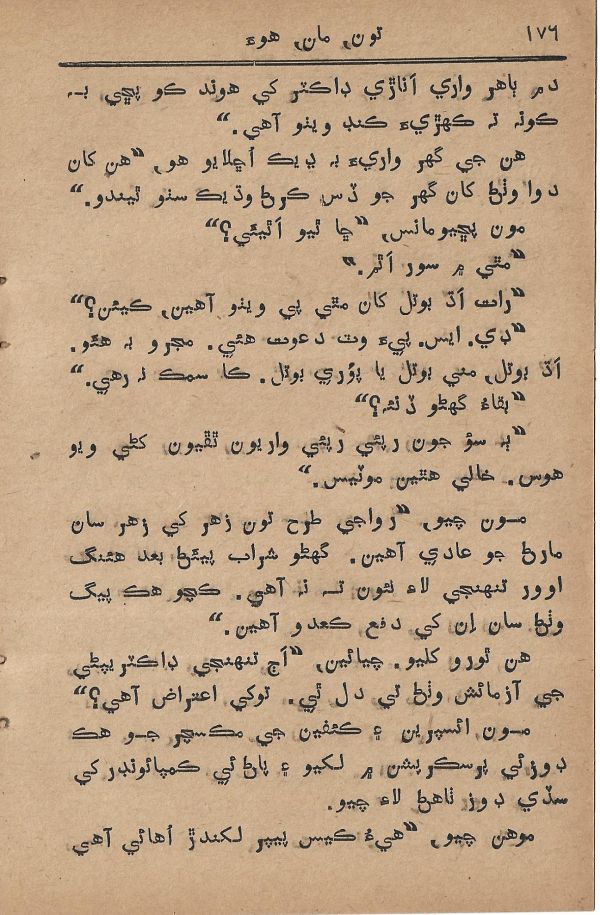 ١٧٦ تون، مان، هوءَ
دم ٻاهر واري اَناڙي ڊاڪٽر کي هوند ڪو پڇي بــہ
ڪونہ تہ ڪهڙيءَ ڪنڊ ويٺو آهي.“
هن جي گهر واريءَ بہ ڍيڪ اُڇلايو هو، ”هن کان
دوا وٺڻ کان گهر جو ڏس ڪرڻ وڌيڪ سٺو ٿيندو.“
مون پڇيومانس، ”ڇا ٿيو اَٿيئي؟“
”مٿي ۾ سور اَٿم.“
”رات اَڌ بوتل کان مٿي پي ويٺو آهين، ڪيئن؟“
”ڊي. ايس. پيءَ وٽ دعوت هئي. مجرو بہ هئو.
اَڌ بوتل، مني بوتل يا پوُري بوتل. ڪا سمڪ نہ رهي.“
”بقاءُ گهڻو ڏنئہ؟“
”ٻہ سؤ جون رپئي رپئي واريون ٿڦيون کڻي ويو
هوس. خالي هٿين موٽيس.“
مــون چيو، ”رواجي طرح تون زهر کي زهر سان
مارڻ جو عادي آهين. گهڻو شراب پيئڻ بعد هئنگ
اوور تنهنجي لاءِ نئون تــہ نہ آهي. ڪچو هڪ پيگ
وٺڻ سان اِن کي دفع ڪندو آهين.“
هن ٿورو کليو. چيائين، ”اَڄ تنهنجي ڊاڪٽريپڻي
جي آزمائش وٺڻ تي دل ٿي. توکي اعتراض آهي؟“
مــون ائسپرين ۽ ڪئفين جي مڪسچر جــو هڪ
ڊوزئي پرسڪرپشن ۾ لکيو ۽ پاڻ ئي ڪمپائونڊر کي
سڏي ڊوز ٺاهڻ لاءِ چيو.
موهن چيو، ”هيءُ ڪيس پيپر لکندڙ اُهائي آهي